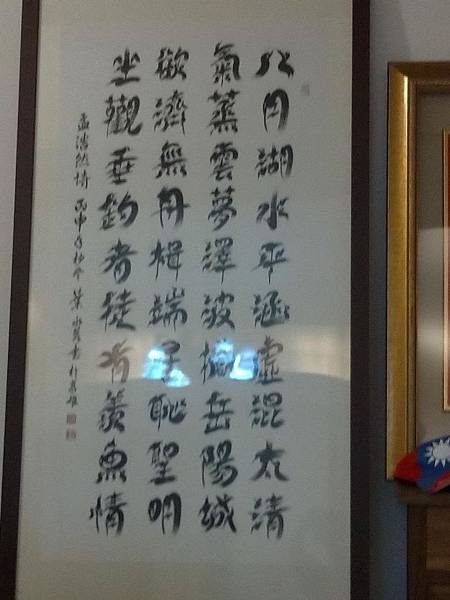 八月湖水平涵虛混太清
氣蒸雲夢澤波撼岳陽城
欲濟無舟楫端居恥聖明
坐觀垂釣者徒有羨魚情
孟浩然詩 丙申年 葉 書於高雄